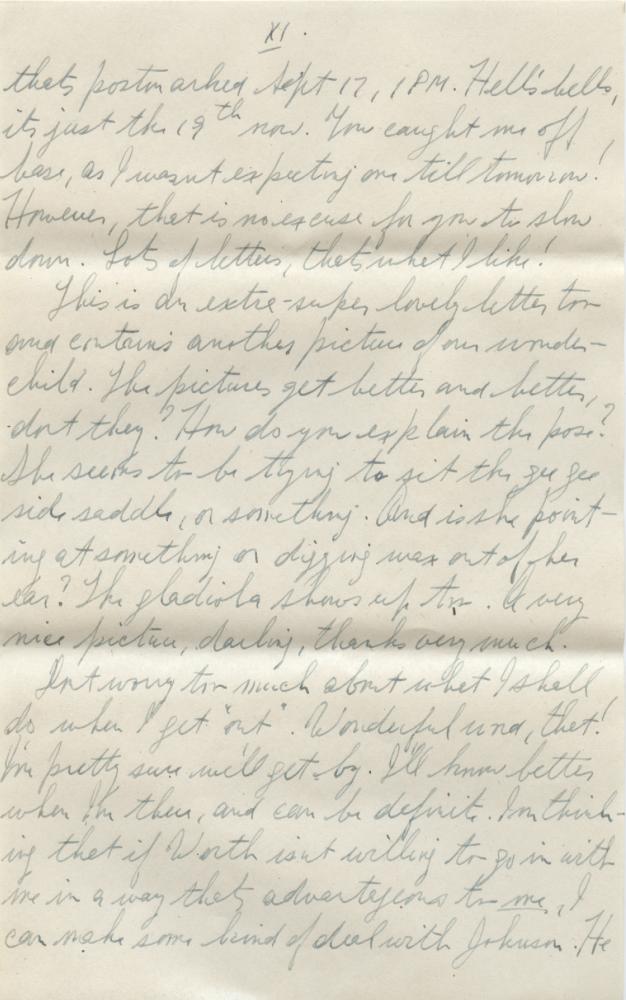 XI.
thats postmarked Sept 17, 1 PM. Hell's bells,
its just the 19th now. You caught me off
base, as I wasnt expecting one till tomorrow!
However, that is no excuse for you to slow
down. Lots of letters, thats what I like!
This is an extra-super lovely letter too
and contains another picture of our wonder-
child. The pictures get better and better,
dont they? How do you explain the pose?
She seems to be trying to sit the gee gee
side saddle, or something. And is she point-
ing at something or digging wax out of her
ear? The gladiola shows up too. A very
nice picture, darling, thanks very much.
Dont worry too much about what I shall
do when I get "out". Wonderful word, that!
Im pretty sure we'll get by. I'll know better
when Im there, and can be definite. Im think-
ing that if Worth isnt willing to go in with
me in a way thats advantageous to me, I
can make some kind of deal with Johnson. He